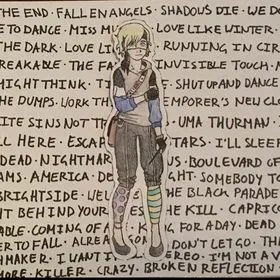 THE END · FALLEN ANGELS · SHADOWS DIE · WE DO
E TO DANCE · MISS M LOVE LIKE WINTER ·
THE DARK · LOVE LI RUNNING IN CIR
REAKABLE · THE FA INVISIBLE TOUCH · M
IGHT THINK · T SHUT UP AND DANCE
THE DUMPS · WORK TH EMPORER'S NEW C
ITE SINS NOT T UMA THURMAN ·
LL HERE · ESCAP STARS · I'LL SLEEP
DEAD · NIGHTMAR US · BOULEVARD OF
AMS · AMERICA · D GHT · SOMEBODY TO
BRIGHTSIDE · WEL E BLACK PARADE
HT BEHIND YOUR E KILL · CAPRICO
ABLE · COMING OF A KING FOR A DAY · DEAD
ER TO FALL · ALREA DON'T LET GO · TH
HMAKER · I WANT I EREO · I'M NOT AN
MORE · KILLER · CRAZY · BROKEN REFLECTIO